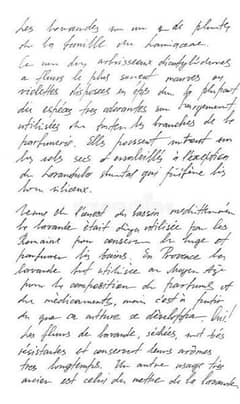 Les lavandes sont un g de plantes
de la famille des lamiaceae.
Ce sont des arbrisseaux dicotylédones
à fleurs le plus souvent mauves ou
violettes disposées en épis dont la plupart
des espèces très odorantes sont largement
utilisées dans toutes les branches de la
parfumerie. Elles poussent surtout sur
les sols secs et ensoleillés à l'exception
de lavandula stoechas qui préfère les
sols siliceux.
Venue de l'ouest du bassin méditerranéen
la lavande était déjà utilisée par les
Romains pour conserver le linge et
parfumer les bains. En Provence la
lavande fut utilisée au Moyen Age
pour la composition de parfums et
de médicaments, mais c'est à partir
du que sa culture se développe.
Les fleurs de lavande, séchées, sont très
résistantes et conservent leurs arômes
très longtemps. Un autre usage très
ancien est celui de mettre de la lavande